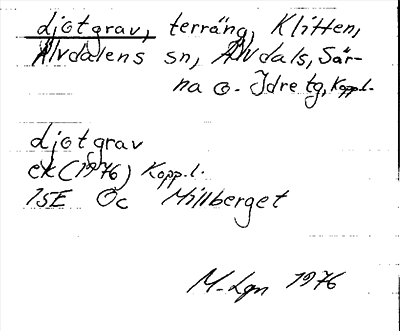 djotgrav, terräng, Klitten,
Älvdalens sn, Älvdals, Sär-
na o. Idre tg, Kopp.l.
djotgrav
ek (1976) Kopp.l.
15E 0c Millberget
M-Lgn 1976